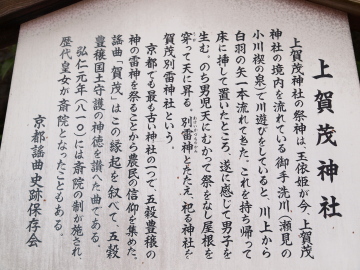 上賀茂神社
上賀茂神社の祭神は、玉依姫が今、上賀茂
神社の境内を流れている御手洗川(瀬見の
小川禊の泉)で川遊びをしていると、川上から
白羽の矢一本流れてきた。これを持ち帰って
床に挿して置いたところ、遂に感じて男子を
生む。のち男児天にむかって祭をなし屋根を
穿って天に昇る。別雷神とたたえ、祀る神社を
賀茂別雷神社という。
京都でも最も古い神社の一つで、五穀豊穣の
神の雷神を祭ることから農民の信仰を集めた。
謡曲「賀茂」はこの縁起を叙べて、五穀
豊穣国土守護の神徳を讃へた曲である。
弘仁元年(八一〇)には斎院の制が施され、
歴代皇女が斎院となったこともある。
京都謡曲史跡保存会